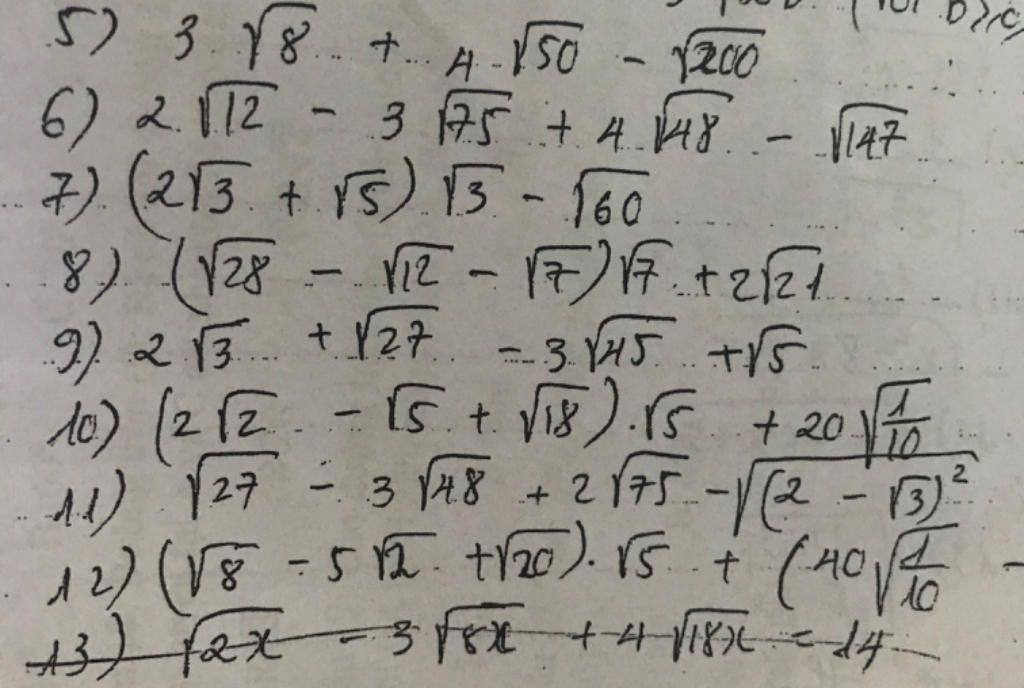 5) 3 √8 + 4 √50 - √200
6) 2 √12 - 3 √75 + 4 √48 - √147
7) (2√3 + √5) √3 - √60
8) (√28 - √12 - √7) √7 + 2√21
9) 2 √3 + √27 - 3 √45 + √5
10) (2 √2 - √5 + √18) . √5 + 20 √(1/10)
11) √27 - 3 √48 + 2 √75 - √((2 - √3)²)
12) (√8 - 5 √2 + √20) . √5 + (40 √(1/10) -
13) √2x - 3 √8x + 4 √18x = 14